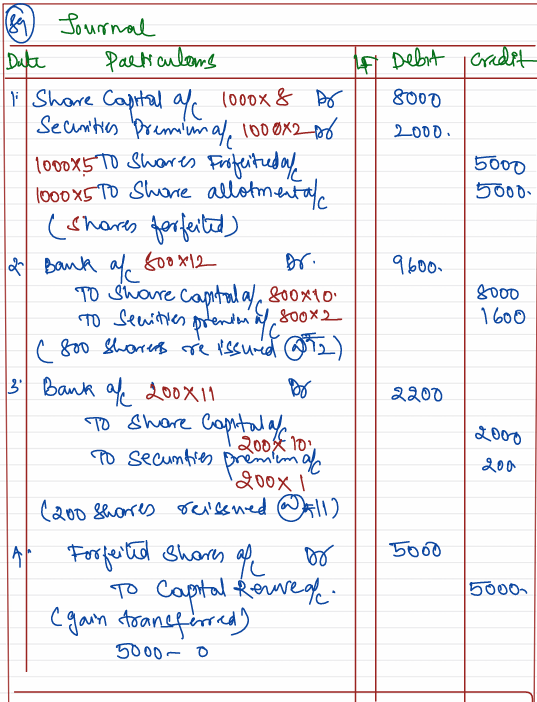 89 Journal
Date Particulars LF Debit Credit
1. Share Capital a/c 1000×8 Dr 8000
Securities Premium a/c 1000×2 Dr 2000.
1000×5 TO Shares Forfeited a/c 5000
1000×5 TO Share allotment a/c 5000.
(Shares forfeited)
2. Bank a/c 800×12 Dr. 9600.
TO Share Capital a/c 800×10. 8000
TO Secuities premium a/c 800×2 1600
(800 Shares re issued @ ₹12)
3. Bank a/c 200×11 Dr 2200
TO Share Capital a/c 2000
200×10.
TO Securities premium a/c 200
200×1
(200 Shares reissued @ ₹11)
4. Forfeited Shares a/c Dr 5000
TO Capital Reserve a/c. 5000
(gain transferred)
5000 - 0